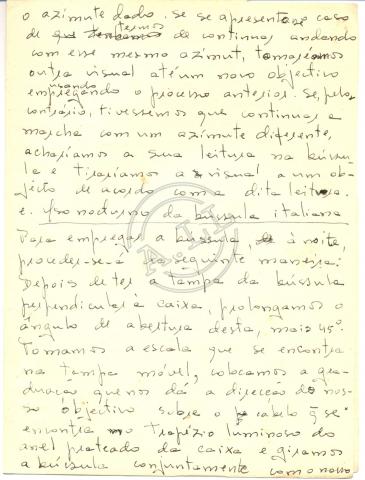 o azimute dado. se se apresentasse caso
de termos de continuar andando
com esse mesmo azimut, tomaríamos
outra visual até um novo objectivo
usando o processo anterior. se, pelo
contrário, tivessemos que continuar a
marcha com um azimute diferente,
achariamos a sua leitura na bússu-
la e tirariamos a visual a um ob-
jecto de acordo com a dita leitura.
e. Uso nocturno da bússula italiana
Para empregar a bússula, à noite,
proceder-se-á da seguinte maneira:
Depois de ter a tampa da bússula
perpendicular à caixa, prolongamos o
ângulo de abertura desta, mais 45º.
Tomamos a escala que se encontra
na tampa móvel, colocamos a gra-
duação que nos dá a direcção do nos-
so objectivo sobre o q̃ se
encontra no trapézio luminoso do
anel prateado da caixa e giramos
a bússula conjuntamente com o novo